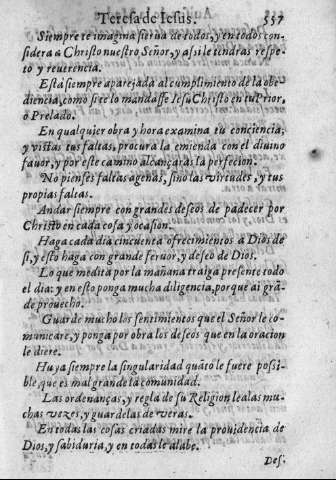 Teresa de Iesus. 557
Siempre te imagina sierua de todos, y en todos con-
sidera a Christo nuestro Señor, y assi le tendras respe-
to y reuerencia.
Està siempre aparejada al cumplimiento de la obe-
diencia, como si te lo mandasse Iesu Christo en tu Prior,
o Prelado.
En qualquier obra y hora examina tu conciencia,
y vistas tus faltas, procura la emienda con el diuino
fauor, y por este camino alcançaras la perfecion.
No pienses faltas agenas, sino las virtudes, y tus
propias faltas.
Andar siempre con grandes deseos de padecer por
Christo en cada cosa y ocasion.
Haga cada dia cincuenta ofrecimientos a Dios de
si, y esto haga con grande feruor, y deseo de Dios.
Lo que medita por la mañana traiga presente todo
el dia: y en esto ponga mucha diligencia, porque ai grã-
de prouecho.
Guarde mucho los sentimientos que el Señor le co-
municare, y ponga por obra los deseos que en la oracion
le diere.
Huya siempre la singularidad quãto le fuere possi-
ble, que es mal grande la comunidad.
Las ordenanças, y regla de su Religion lealas mu-
chas vezes, y guardelas de veras.
En todas las cosas criadas mire la prouidencia de
Dios, y sabiduria, y en todas le alabe.
Des-